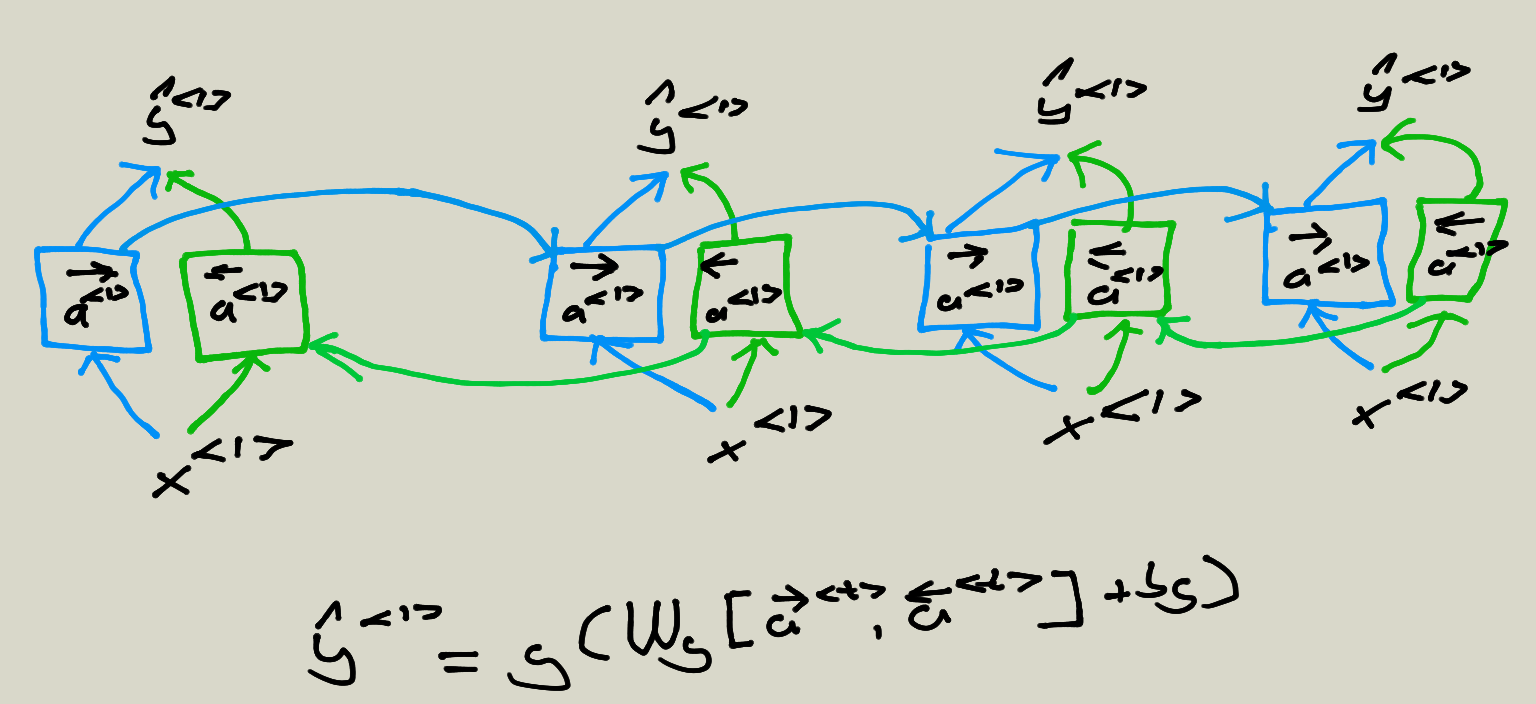 ŷ<1> ŷ<1> ŷ<1> ŷ<1>
→a<1> ←a<1> →a<1> ←a<1> →a<1> ←a<1> →a<1> ←a<1>
x<1> x<1> x<1> x<1>
ŷ<1> = g(Wy[→a<t>, ←a<t>] + by)